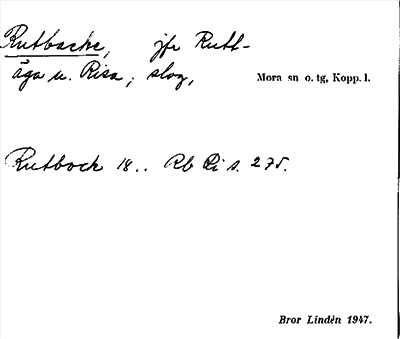 Rutbacke, jfr Rutt-
åga u. Risa; slog,
Mora sn o. tg, Kopp. l.
Rutback 18.. Rb Ri s. 275.
Bror Lindén 1947.